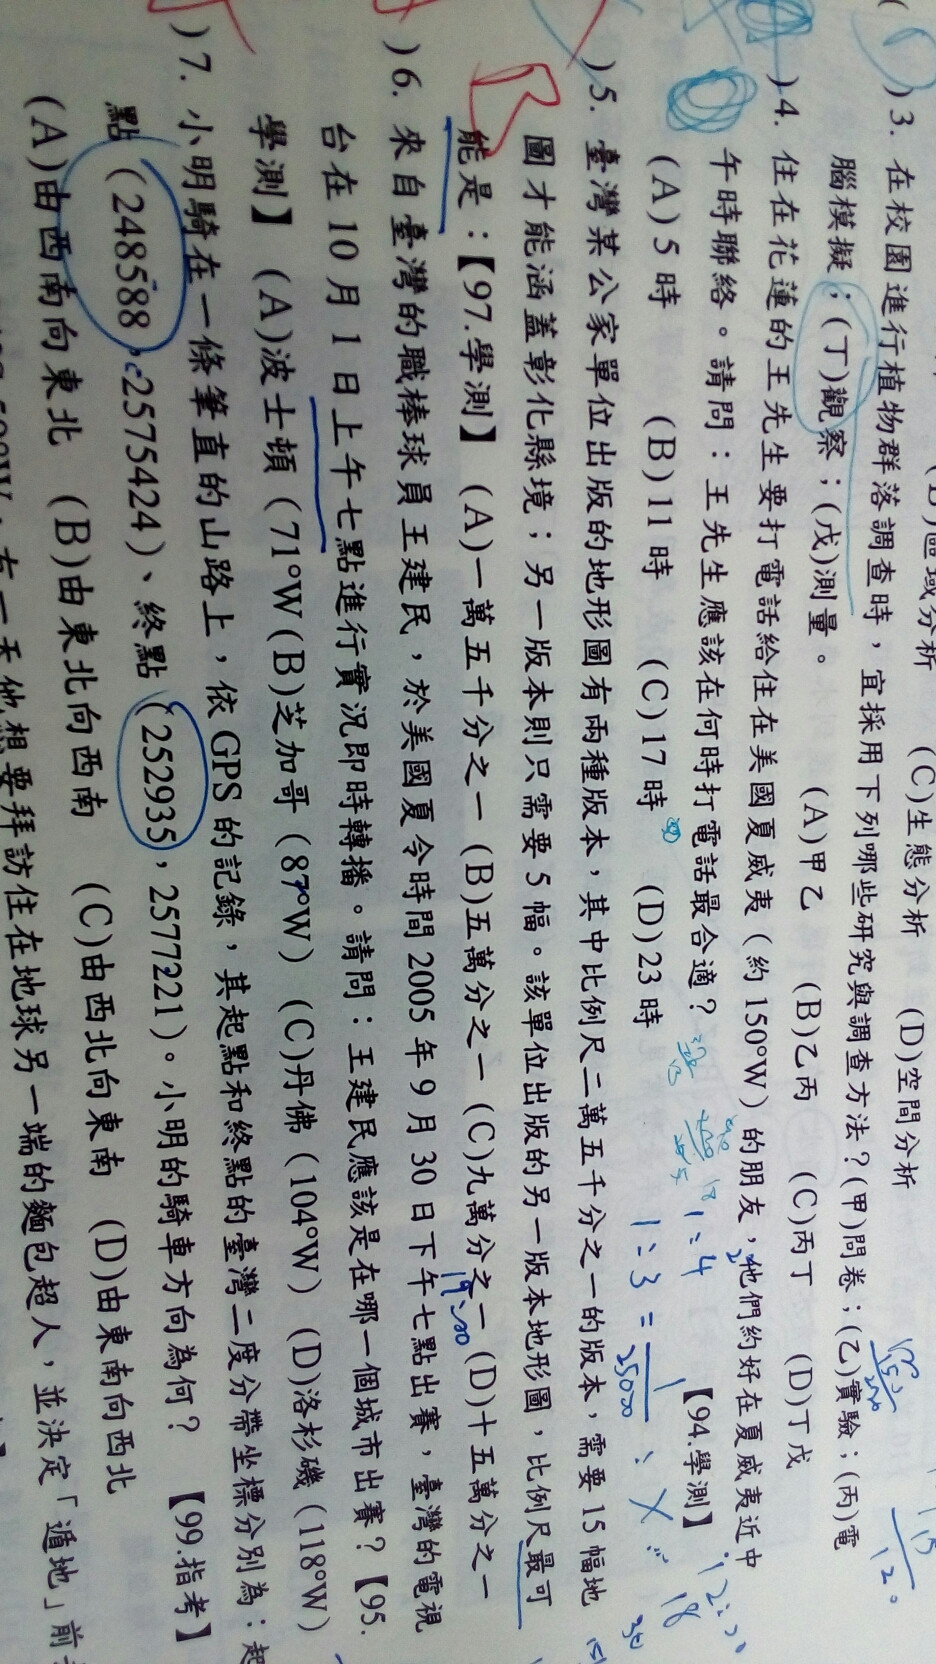 (D)區域分析 (C)生態分析 (D)空間分析
)3. 在校園進行植物群落調查時，宜採用下列哪些研究與調查方法？(甲)問卷；(乙)實驗；(丙)電
腦模擬；(丁)觀察；(戊)測量。 (A)甲乙 (B)乙丙 (C)丙丁 (D)丁戊
)4. 住在花蓮的王先生要打電話給住在美國夏威夷（約150°W）的朋友，他們約好在夏威夷近中
午時聯絡。請問：王先生應該在何時打電話最合適？ 【94.學測】
(A)5時 (B)11時 (C)17時 (D)23時
1:4
1:3=1/25000:X
12:00
18
)5. 臺灣某公家單位出版的地形圖有兩種版本，其中比例尺二萬五千分之一的版本，需要15幅地
圖才能涵蓋彰化縣境；另一版本則只需要5幅。該單位出版的另一版本地形圖，比例尺最可
能是：【97.學測】 (A)一萬五千分之一 (B)五萬分之一 (C)九萬分之一 (D)十五萬分之一
B
19:00
)6. 來自臺灣的職棒球員王建民，於美國夏令時間2005年9月30日下午七點出賽，臺灣的電視
台在10月1日上午七點進行實況即時轉播。請問：王建民應該是在哪一個城市出賽？【95.
學測】 (A)波士頓（71°W(B)芝加哥（87°W） (C)丹佛（104°W） (D)洛杉磯（118°W）
)7. 小明騎在一條筆直的山路上，依GPS的記錄，其起點和終點的臺灣二度分帶坐標分別為：起
點（248588，2575424）、終點（252935，2577221）。小明的騎車方向為何？ 【99.指考】
(A)由西南向東北 (B)由東北向西南 (C)由西北向東南 (D)由東南向西北
有一天他想要拜訪住在地球另一端的麵包超人，並決定「遁地」前